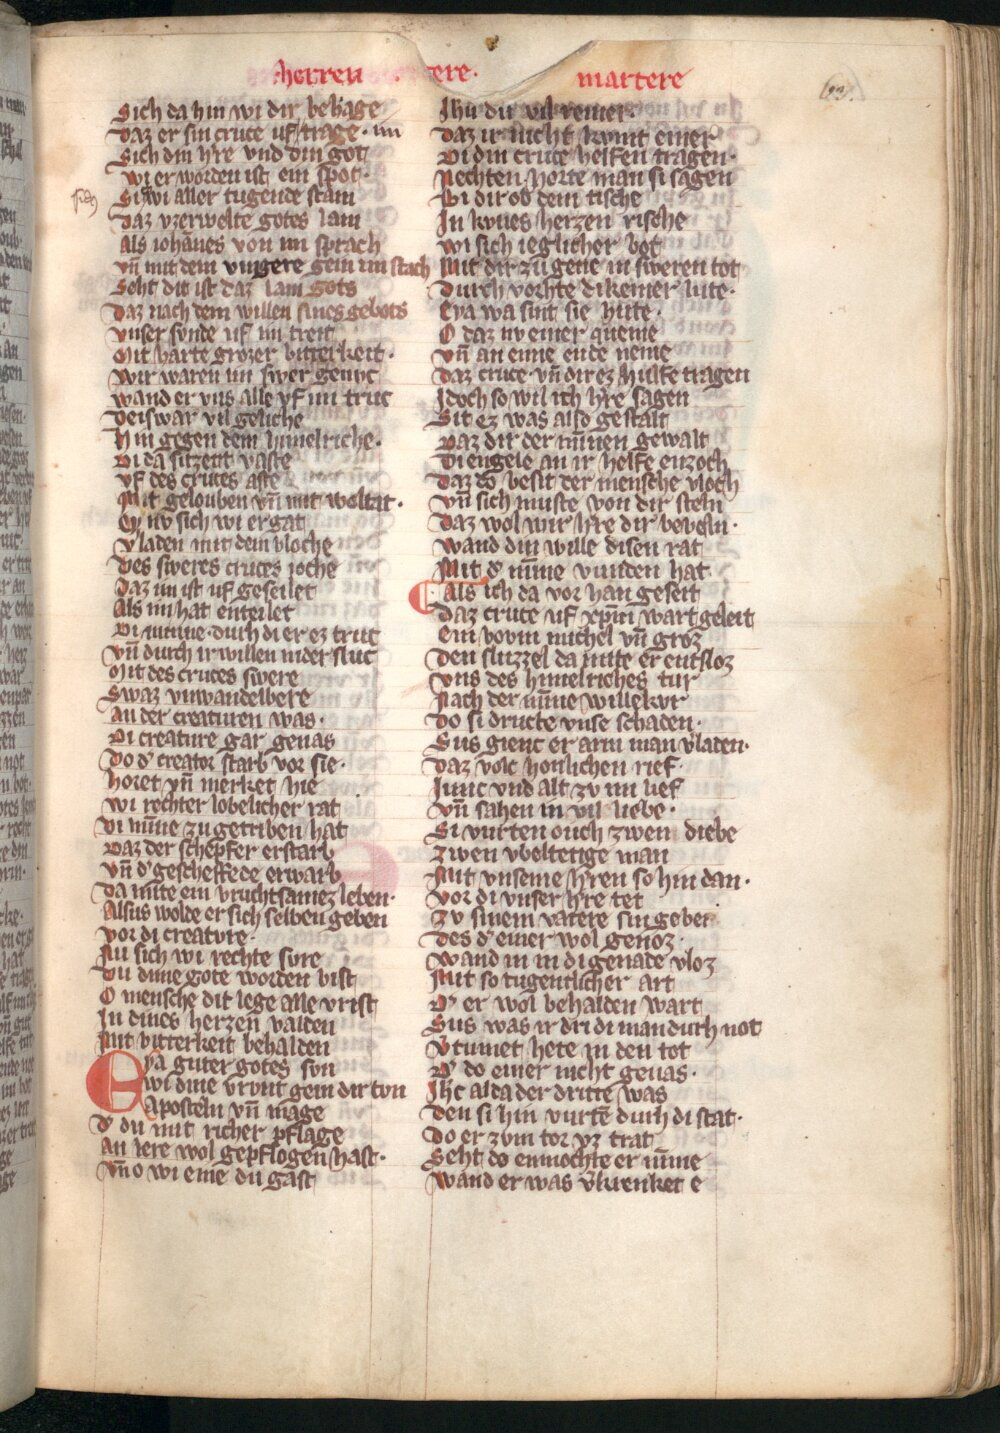 herren martere
Sich da hin wi dir behage
Daz er sin cruce uf trage · im
Sich din hre vnd din got
wi er worden ist ein spot·
Sih wi aller tugende stam
Daz vzerwelte gotes lam
Als iohanes von im sprach
vn̄ mit dem vingere gein im stach
Seht dit ist daz lam gots
Daz nach dem willen sines gebots
vnser sunde uf im treit
Mit harte grozer bitterkeit·
Wir waren im swer genvc
wand er vns alle vf im truc
Deiswar vil geliche
Hin gegen dem himelriche·
Di da sitzent vaste
vf des cruces aste
Mit gelouben vn̄ mit woltat·
Ey nv sich wi er gat
v̓laden mit dem bloche
Des sweres cruces ioche
Daz im ist uf geseilet
Als im hat enteilet
Di minne· durch di er ez truc
vn̄ durch ir willen nider sluc
Mit des cruces swere
Swaz vnwandelbere
An der creaturen was·
Di creature gar genas
Do d' creator starb vor sie·
horet vn̄ merket hie
wi rechter lobelicher rat
Di mīne zu getriben hat
Daz der schepfer erstarb
vn̄ d' gescheffede erwarb
Da mite ein vruchtsamez leben·
Alsus wolde er sich selben geben
vor di creatvre·
Nu sich wi rechte sure
Du dime gote worden bist
O mensche dit lege alle vrist
In dines herzen valden
Mit bitterkeit behalden
Eya guter gotes svn
wi dine vrunt gein dir tvn
Aposteln vn̄ mage
D' du mit richer pflage
An lere wol gepflogen hast·
vn̄ o wi eine du gast
martere
Jhu du vil reiner·
Daz ir nicht kvmt einer
Di din cruce helfen tragen·
Nechten horte man si sagen
Bi dir ob dem tische
In kvnes herzen rische
wi sich ieglicher bot
Mit dir zu gene in sweren tot
Durch vorchte dikeiner lute·
Eya wa sint sie hute·
O daz nv einer queme
vn̄ an eime ende neme
Daz cruce· vn̄ dir ez hulfe tragen
Jdoch so wil ich hre sagen
Sit ez was also gestalt
Daz dir der minnen gewalt
Di engele an ir helfe enzoch
Daz do besit der mensche vloch
vn̄ sich muste von dir steln
Daz wol wir hre dir beveln·
wand din wille disen rat
Mit d' mīne vunden hat
Als ich da vor han geseit
Daz cruce uf xp̄m wart geleit
Ein bovm michel vn̄ groz
Den sluzzel da mite er entsloz
vns des himelriches tur
Nach der mīne willekvr
Do si dructe vnse schaden·
Sus gienc er arm man v̓laden·
Daz volc honlichen rief·
Junc vnd alt zv im lief
vn̄ sahen in vil liebe·
Si vurten ouch zwein diebe
zwen vbeltetige man
Mit vnseme hren so hin dan·
vor di vnser hre tet
zv sinem vatere sin gebet
Des d' einer wol genoz·
wand in in di genade vloz
Mit so tugentlicher art
D' er wol behalden wart
Sus was ir dri di man durch not
v̓tumet hete in den tot
D' do einer nicht genas·
Jhc alda der dritte was
Den si hin vurtē durch di stat·
Do er zvm tor vz trat
Seht do enmochte er nīme
wand er was v̓krenket e